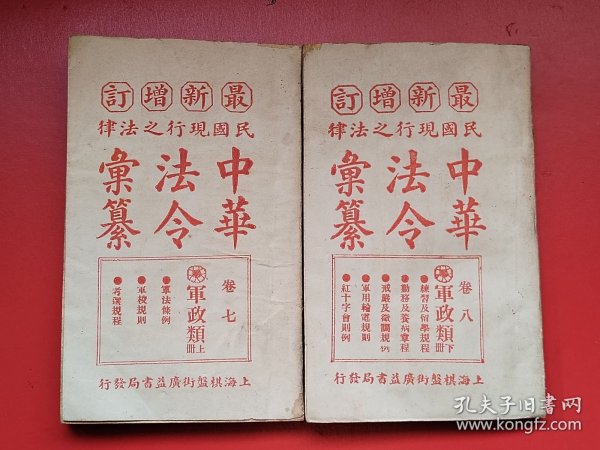 最新增訂
民國現行之法律
中華
法令
彙纂
卷七
軍政類上冊
軍法條例
軍校規則
考選規程
上海棋盤街廣益書局發行
最新增訂
民國現行之法律
中華
法令
彙纂
卷八
軍政類下冊
練習及留學規程
勤務及養病章程
戒嚴及徵調規例
軍用輪電規則
紅十字會則例
上海棋盤街廣益書局發行
孔夫子旧書网
www.kongfz.com